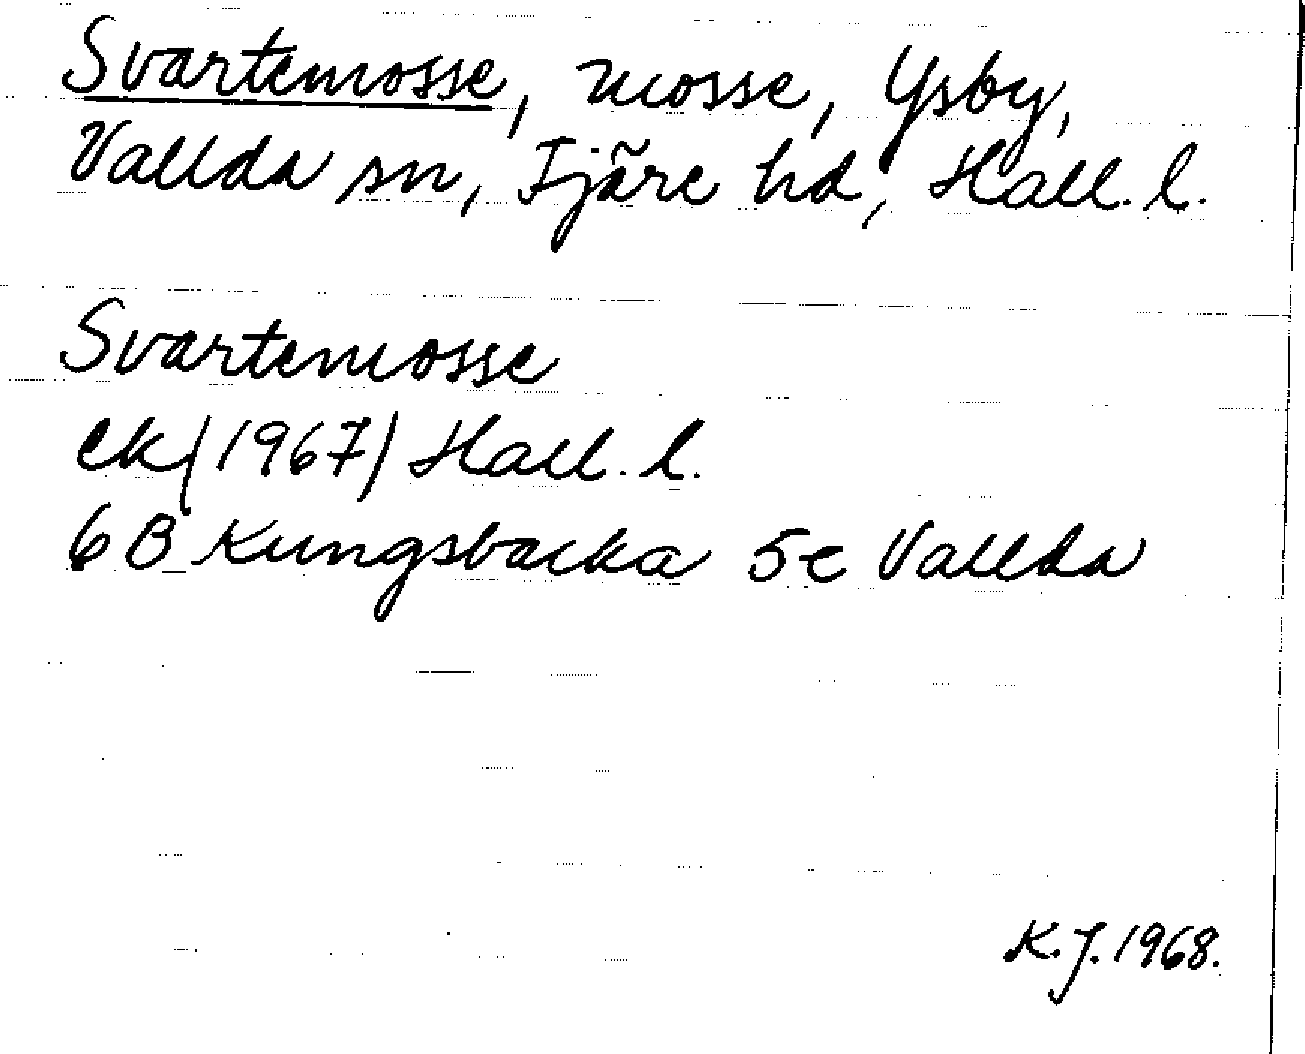 Svartemosse, mosse, Ysby,
Vallda sn, Fjäre hd, Hall. l.
Svartemosse
ek (1967) Hall. l.
6B Kungsbacka 5e Vallda
K.J. 1968.